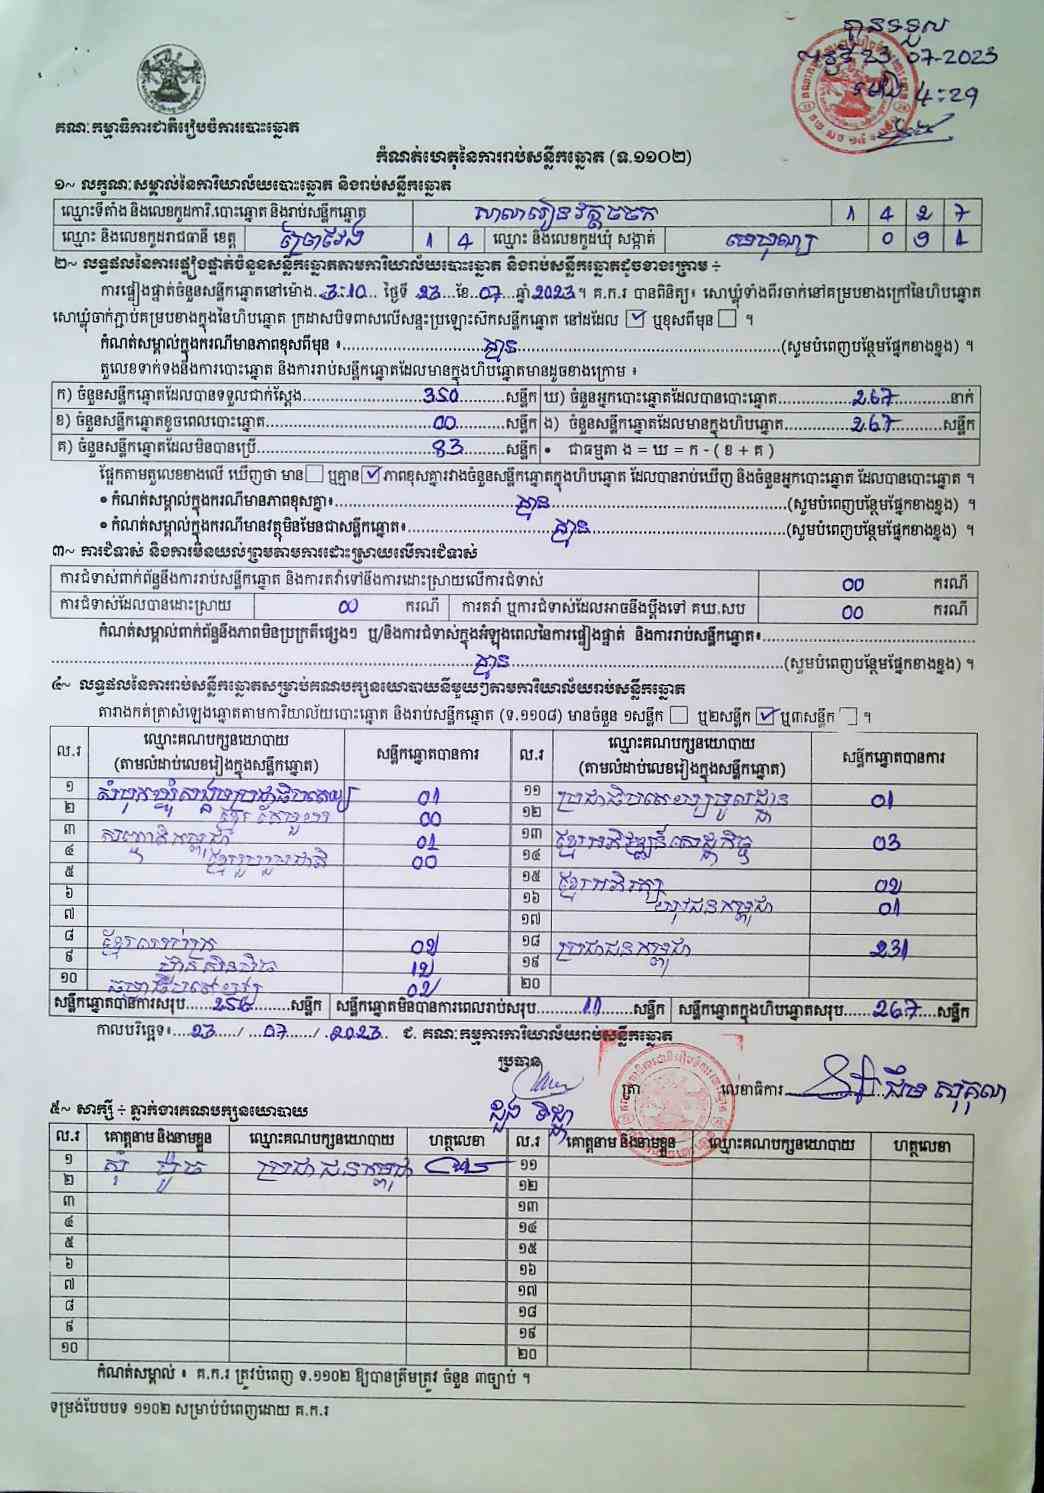 បានទទួល
ថ្ងៃទី 23.07-2023
ម៉ោង 4:29
គណៈកម្មាធិការជាតិរៀបចំការបោះឆ្នោត
កំណត់ហេតុនៃការរាប់សន្លឹកឆ្នោត (ទ.១១០២)
១~ លក្ខណៈសម្គាល់នៃការិយាល័យបោះឆ្នោត និងរាប់សន្លឹកឆ្នោត
ឈ្មោះទីតាំង និងលេខកូដការិ.បោះឆ្នោត និងរាប់សន្លឹកឆ្នោត សាលារៀនវត្តចចក 1 4 2 7
ឈ្មោះ និងលេខកូដរាជធានី ខេត្ត ព្រៃវែង 1 4 ឈ្មោះ និងលេខកូដឃុំ សង្កាត់ 0 9 1
២~ លទ្ធផលនៃការផ្ទៀងផ្ទាត់ចំនួនសន្លឹកឆ្នោតតាមការិយាល័យបោះឆ្នោត និងរាប់សន្លឹកឆ្នោតដូចខាងក្រោម ÷
ការផ្ទៀងផ្ទាត់ចំនួនសន្លឹកឆ្នោតនៅម៉ោង..3:10... ថ្ងៃទី ..23...ខែ..07...ឆ្នាំ 2023។ គ.ក.រ បានពិនិត្យ៖ សោឃ្លុំទាំងពីរចាក់នៅគម្របខាងក្រៅនៃហិបឆ្នោត
សោឃ្លុំចាក់ភ្ជាប់គម្របខាងក្នុងនៃហិបឆ្នោត ក្រដាសបិទពាសលើសន្ទះប្រឡោះស៊កសន្លឹកឆ្នោត នៅដដែល ☑ ឬខុសពីមុន ☐ ។
កំណត់សម្គាល់ក្នុងករណីមានភាពខុសពីមុន ៖........គ្មាន........(សូមបំពេញបន្ថែមផ្នែកខាងខ្នង) ។
តួលេខទាក់ទងនឹងការបោះឆ្នោត និងការរាប់សន្លឹកឆ្នោតដែលមានក្នុងហិបឆ្នោតមានដូចខាងក្រោម ៖
ក) ចំនួនសន្លឹកឆ្នោតដែលបានទទួលជាក់ស្តែង........350........សន្លឹក ឃ) ចំនួនអ្នកបោះឆ្នោតដែលបានបោះឆ្នោត........267........នាក់
ខ) ចំនួនសន្លឹកឆ្នោតខូចពេលបោះឆ្នោត........00........សន្លឹក ង) ចំនួនសន្លឹកឆ្នោតដែលមានក្នុងហិបឆ្នោត........267........សន្លឹក
គ) ចំនួនសន្លឹកឆ្នោតដែលមិនបានប្រើ........83........សន្លឹក • ជាធម្មតា ង = ឃ = ក - ( ខ + គ )
ផ្អែកតាមតួលេខខាងលើ ឃើញថា មាន ☐ ឬគ្មាន ☑ ភាពខុសគ្នារវាងចំនួនសន្លឹកឆ្នោតក្នុងហិបឆ្នោត ដែលបានរាប់ឃើញ និងចំនួនអ្នកបោះឆ្នោត ដែលបានបោះឆ្នោត ។
• កំណត់សម្គាល់ក្នុងករណីមានភាពខុសគ្នា៖........គ្មាន........(សូមបំពេញបន្ថែមផ្នែកខាងខ្នង) ។
• កំណត់សម្គាល់ក្នុងករណីមានវត្ថុមិនមែនជាសន្លឹកឆ្នោត៖........គ្មាន........(សូមបំពេញបន្ថែមផ្នែកខាងខ្នង) ។
៣~ ការជំទាស់ និងការមិនយល់ព្រមតាមការដោះស្រាយលើការជំទាស់
ការជំទាស់ពាក់ព័ន្ធនឹងការរាប់សន្លឹកឆ្នោត និងការតវ៉ាទៅនឹងការដោះស្រាយលើការជំទាស់ 00 ករណី
ការជំទាស់ដែលបានដោះស្រាយ 00 ករណី ការតវ៉ា ឬការជំទាស់ដែលអាចនឹងប្តឹងទៅ គឃ.សប 00 ករណី
កំណត់សម្គាល់ពាក់ព័ន្ធនឹងភាពមិនប្រក្រតីផ្សេងៗ ឬ/និងការជំទាស់ក្នុងអំឡុងពេលនៃការផ្ទៀងផ្ទាត់ និងការរាប់សន្លឹកឆ្នោត៖........
........គ្មាន........(សូមបំពេញបន្ថែមផ្នែកខាងខ្នង) ។
៤~ លទ្ធផលនៃការរាប់សន្លឹកឆ្នោតសម្រាប់គណបក្សនយោបាយនីមួយៗតាមការិយាល័យរាប់សន្លឹកឆ្នោត
តារាងកត់ត្រាសំឡេងឆ្នោតតាមការិយាល័យបោះឆ្នោត និងរាប់សន្លឹកឆ្នោត (ទ.១១០៨) មានចំនួន ១សន្លឹក ☐ ឬ២សន្លឹក ☑ ឬ៣សន្លឹក ☐ ។
ល.រ ឈ្មោះគណបក្សនយោបាយ (តាមលំដាប់លេខរៀងក្នុងសន្លឹកឆ្នោត) សន្លឹកឆ្នោតបានការ ល.រ ឈ្មោះគណបក្សនយោបាយ (តាមលំដាប់លេខរៀងក្នុងសន្លឹកឆ្នោត) សន្លឹកឆ្នោតបានការ
១ សំបុកឃ្មុំសង្គមប្រជាធិបតេយ្យ 01 ១១ ប្រជាធិបតេយ្យមូលដ្ឋាន 01
២ ខ្មែរតែមួយ 00 ១២
៣ សញ្ជាតិកម្ពុជា 01 ១៣ ខ្មែរអភិវឌ្ឍន៍សេដ្ឋកិច្ច 03
៤ ខ្មែររួបរួមជាតិ 00 ១៤
៥ ១៥ ខ្មែរអភិរក្ស 02
៦ ១៦ យុវជនកម្ពុជា 01
៧ ១៧
៨ ខ្មែរឈប់ក្រ 02 ១៨ ប្រជាជនកម្ពុជា 231
៩ ហ៊្វុនស៊ិនប៉ិច 12 ១៩
១០ ធម្មាធិបតេយ្យ 02 ២០
សន្លឹកឆ្នោតបានការសរុប......256......សន្លឹក សន្លឹកឆ្នោតមិនបានការពេលរាប់សរុប......11......សន្លឹក សន្លឹកឆ្នោតក្នុងហិបឆ្នោតសរុប......267....សន្លឹក
កាលបរិច្ឆេទ៖....23..../....07..../..2023.. ជ. គណៈកម្មការការិយាល័យរាប់សន្លឹកឆ្នោត
ប្រធាន
ត្រា
លេខាធិការ
៥~ សាក្សី ÷ ភ្នាក់ងារគណបក្សនយោបាយ
ល.រ គោត្តនាម និងនាមខ្លួន ឈ្មោះគណបក្សនយោបាយ ហត្ថលេខា ល.រ គោត្តនាម និងនាមខ្លួន ឈ្មោះគណបក្សនយោបាយ ហត្ថលេខា
១ ប្រជាជនកម្ពុជា ១១
២ ១២
៣ ១៣
៤ ១៤
៥ ១៥
៦ ១៦
៧ ១៧
៨ ១៨
៩ ១៩
១០ ២០
កំណត់សម្គាល់ ៖ គ.ក.រ ត្រូវបំពេញ ទ.១១០២ ឱ្យបានត្រឹមត្រូវ ចំនួន ៣ច្បាប់ ។
ទម្រង់បែបបទ ១១០២ សម្រាប់បំពេញដោយ គ.ក.រ